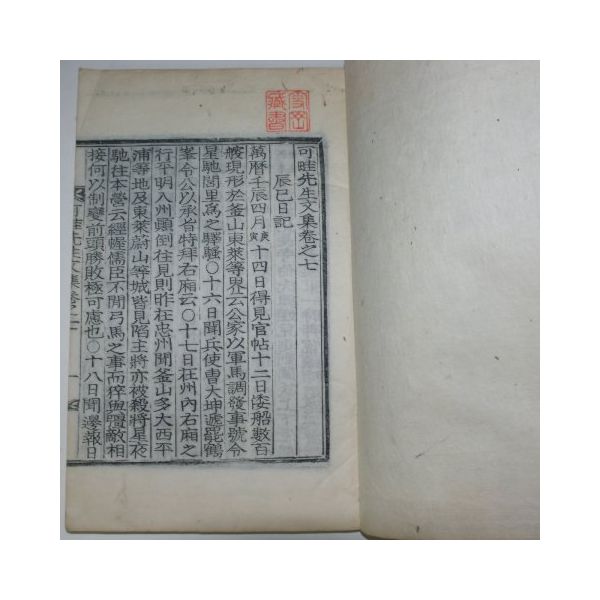 可畦先生文集卷之七
辰巳日記
萬曆壬辰四月庚寅十四日得見官帖十二日倭船數百
艘現形於釜山東萊等界云公家以軍馬調發事號令
星馳閭里爲之驛騷○十六日聞兵使曺大坤遞罷鶴
峯令公以承旨特拜右廂云○十七日在州內右廂之
行平明入州頭倒往見則昨在忠州聞釜山多大西平
浦等地及東萊蔚山等城皆見陷主將亦被殺將星夜
馳往本營云經幄儒臣不閒弓馬之事而猝與彊敵相
接何以制變前頭勝敗極可慮也○十八日聞邊報日
可畦先生文集卷之七
一
藏書